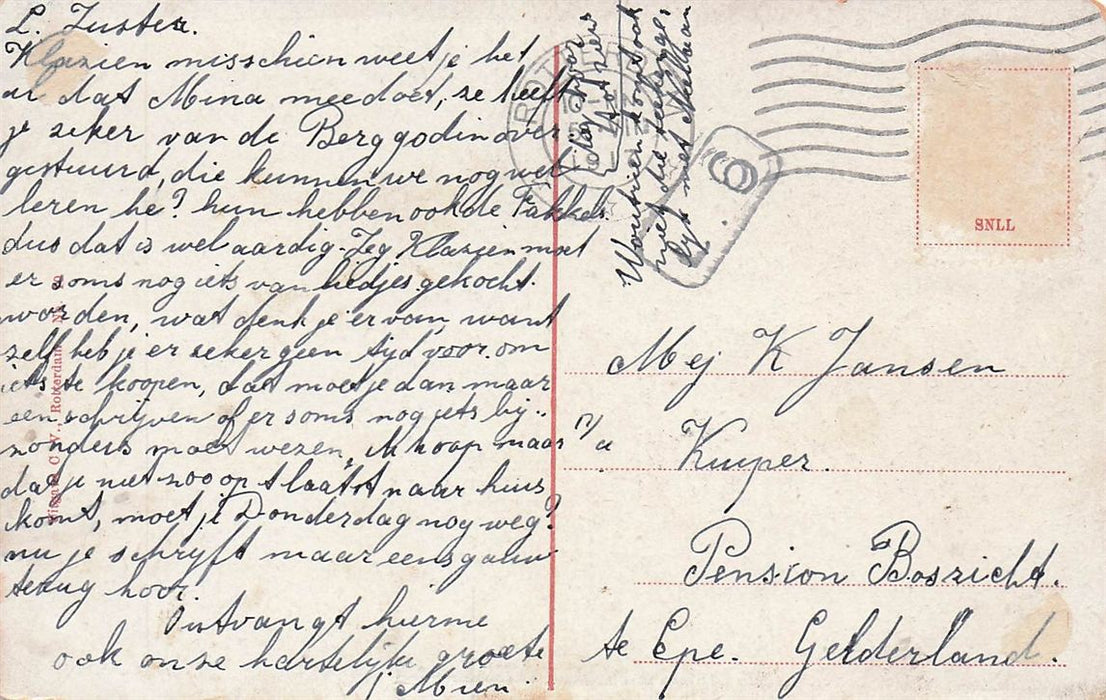 L. Zuster.
Klazien misschien weet je het
al dat Mina meedoet, ze heeft
je zeker van de Berggodin over
gestuurd, die kunnen we nog wel
leren he? hun hebben ook de Fakkels
dus dat is wel aardig. Zeg Klazien moet
er soms nog iets van liedjes gekocht
worden, wat denk je ervan, want
zelf heb je er zeker geen tijd voor om
iets te koopen, dat moet je dan maar
een schrijven of er soms nog iets bij..
zonders moet wezen, ik hoop maar
dat je niet zoo op t laatst naar huis
komt, moet je Donderdag nog weg?
nu je schryft maar eens gauw
terug hoor.
Ontvangt hierme
ook onze hartelijke groete
Mien.
Dag hoor
tot ziens
Woutrien komt ook
met die
lyst met
ROT
6
SNLL
Mej K Jansen
p/a Kuiper.
Pension Boszicht.
te Epe. Gelderland.
Rotterdam